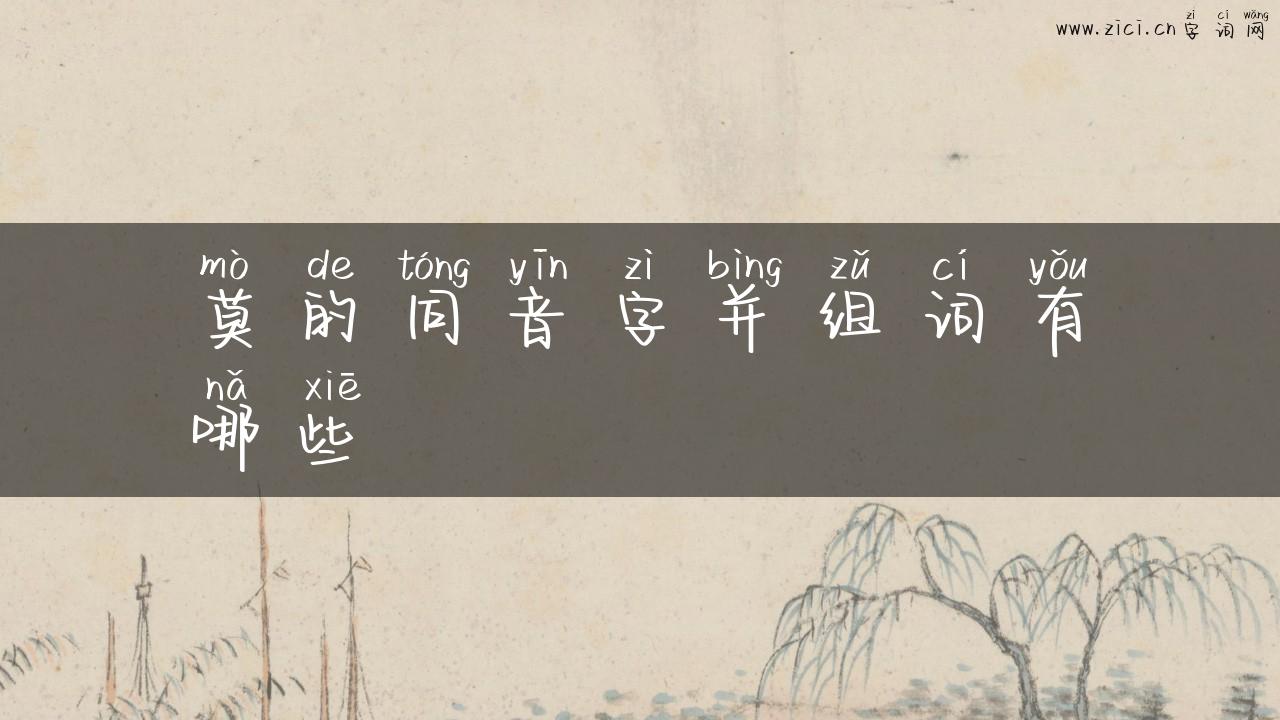 zì cí wǎng
www.zici.cn 字词网
mò de tóng yīn zì bìng zǔ cí yǒu
莫的同音字并组词有
nǎ xiē
哪些